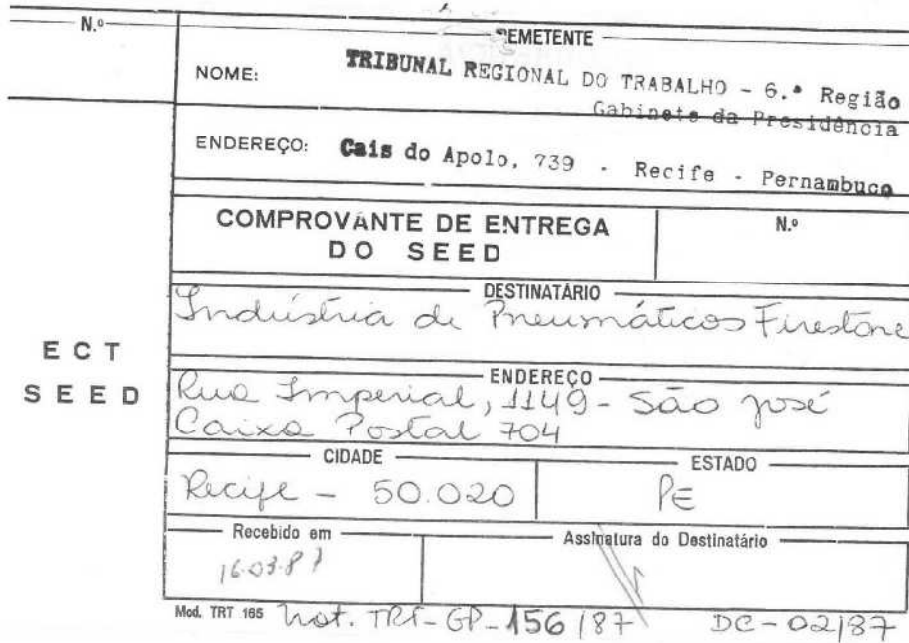 N.º
REMETENTE
NOME: TRIBUNAL REGIONAL DO TRABALHO - 6.ª Região
Gabinete da Presidência
ENDEREÇO: Cais do Apolo, 739 - Recife - Pernambuco
COMPROVANTE DE ENTREGA
DO SEED
N.º
DESTINATÁRIO
Indústria de Pneumáticos Firestone
ECT
SEED
ENDEREÇO
Rua Imperial, 1149 - São José
Caixa Postal 704
CIDADE
Recife - 50.020
ESTADO
PE
Recebido em
16.03.87
Assinatura do Destinatário
Mod. TRT 165
Not. TRT-GP-156/87
DC-02/87